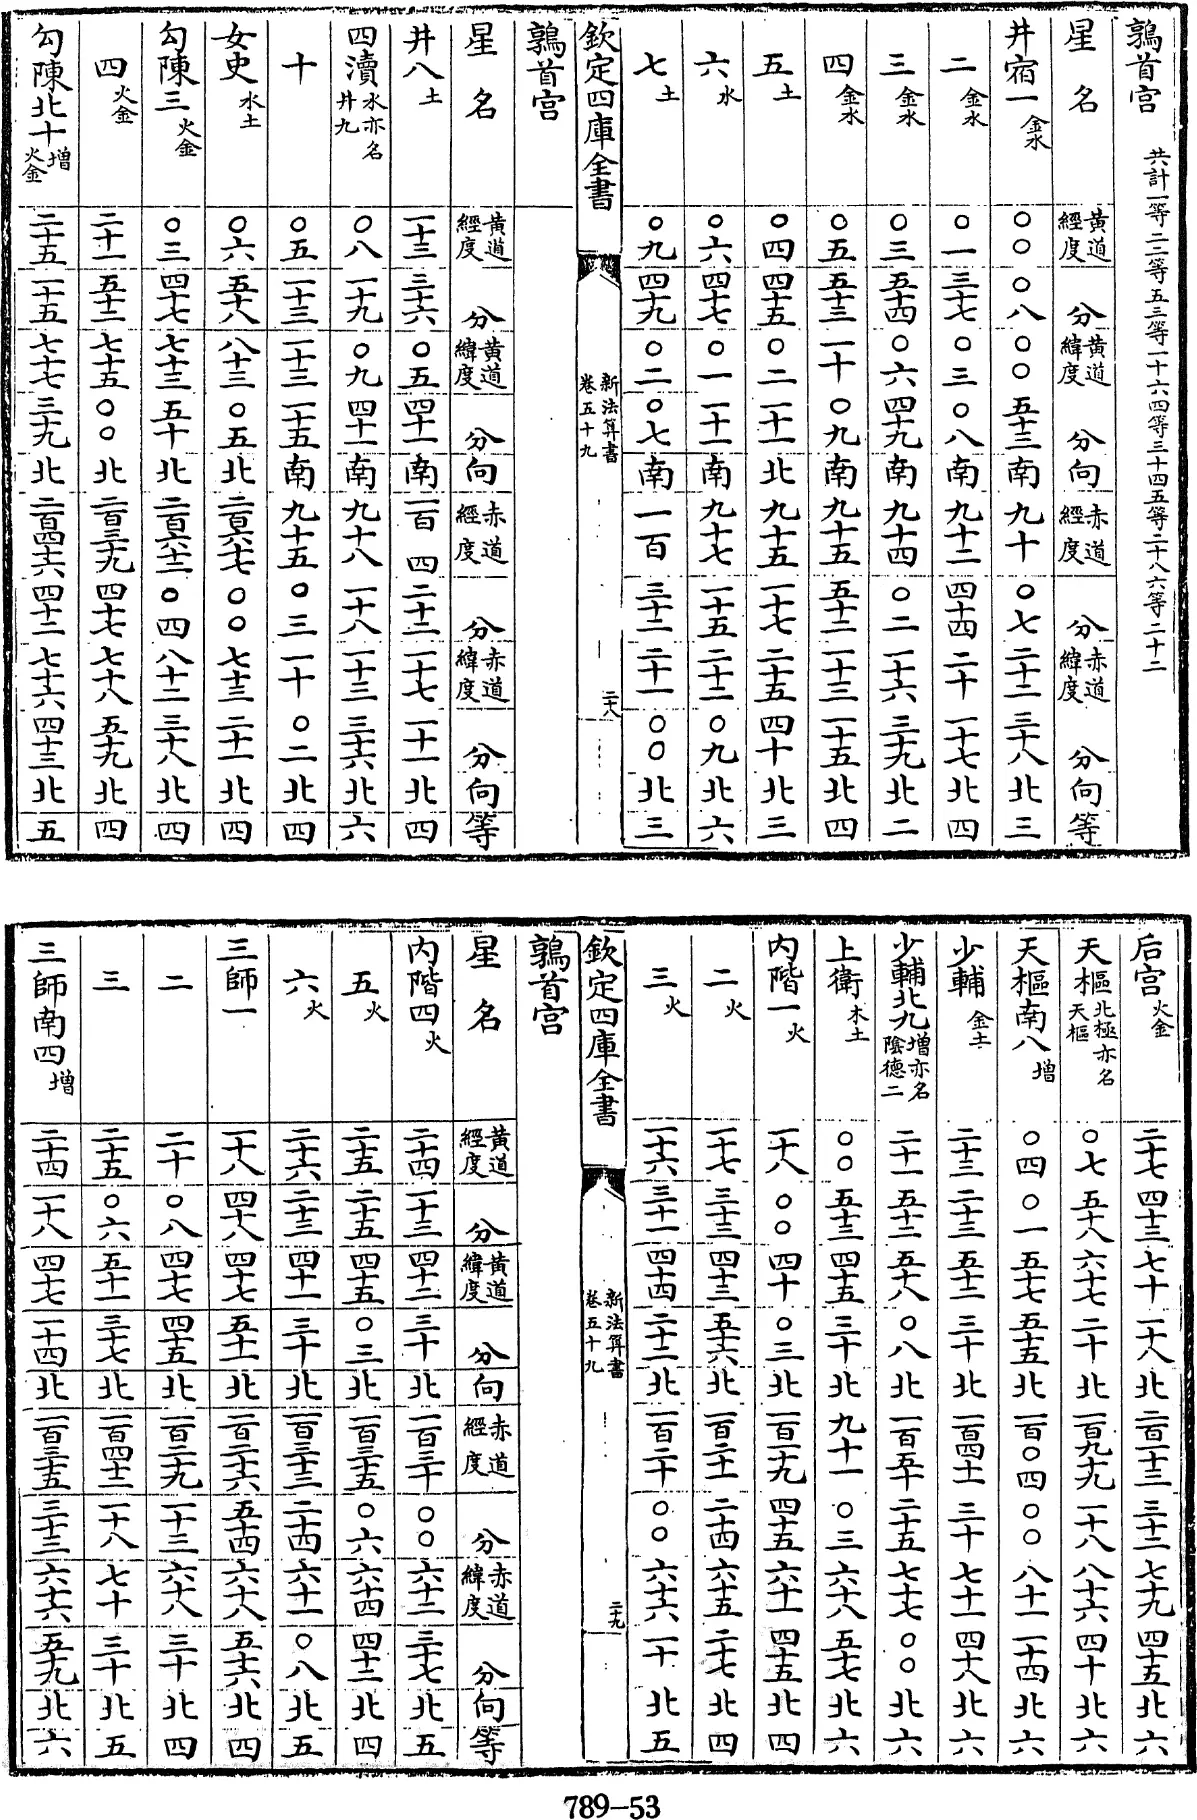 鶉首宮 共計一等二二等五三等一十六四等三十四五等二十八六等二十二
星名 黄道經度 分 黄道緯度 分 向 赤道經度 分 赤道緯度 分 向 等
井宿一 金水 〇〇 〇八 〇〇 五十三 南 九十 〇七 二十二 三十八 北 三
二 金水 〇一 三十七 〇三 〇八 南 九十二 四十四 二十 一十七 北 四
三 金水 〇三 五十四 〇六 四十九 南 九十四 〇二 一十六 三十九 北 二
四 金水 〇五 五十三 一十 〇九 南 九十五 五十二 一十三 一十五 北 四
五 土 〇四 四十五 〇二 一十一 北 九十五 一十七 二十五 四十 北 三
六 水 〇六 四十七 〇一 一十一 南 九十七 一十五 二十二 〇九 北 六
七 土 〇九 四十九 〇二 〇七 南 一百 三十二 二十一 〇〇 北 三
欽定四庫全書 新法算書 卷五十九 二十八
鶉首宮
星名 黄道經度 分 黄道緯度 分 向 赤道經度 分 赤道緯度 分 向 等
井八 土 一十三 三十六 〇五 四十一 南 一百四 二十二 一十七 一十一 北 四
四瀆 水亦名井九 〇八 一十九 〇九 四十一 南 九十八 一十八 一十三 三十六 北 六
十 〇五 一十三 一十三 一十五 南 九十五 〇三 一十 〇二 北 四
女史 水土 〇六 五十八 八十三 〇五 北 二百六十七 〇〇 七十三 二十一 北 四
勾陳三 火金 〇三 四十七 七十三 五十 北 二百六十二 〇四 八十二 三十八 北 四
四 火金 二十一 五十二 七十五 〇〇 北 二百三十九 四十七 七十八 五十九 北 四
勾陳北十 增火金 二十五 一十五 七十七 三十九 北 二百四十六 四十二 七十六 四十三 北 五
后宮 火金 二十七 四十三 七十 一十八 北 二百一十三 三十二 七十九 四十五 北 六
天樞 北極亦名天樞 〇七 五十八 六十七 二十 北 一百九十九 一十八 八十六 四十 北 六
天樞南八 增 〇四 〇一 五十七 五十五 北 一百〇四 〇〇 八十一 一十四 北 六
少輔 金土 二十三 二十三 五十二 三十 北 一百四十一 三十 七十一 四十八 北 六
少輔北九 增亦名陰德二 二十一 五十二 五十八 〇八 北 一百五十 二十五 七十七 〇〇 北 六
上衛 木土 〇〇 五十三 四十五 三十 北 九十一 〇三 六十八 五十七 北 六
内階一 火 一十八 〇〇 四十 〇三 北 一百一十九 四十五 六十一 四十五 北 四
二 火 一十七 三十三 四十三 五十六 北 一百二十一 二十四 六十五 二十七 北 四
三 火 一十六 三十一 四十四 二十二 北 一百二十 〇〇 六十六 一十 北 五
欽定四庫全書 新法算書 卷五十九 二十九
鶉首宮
星名 黄道經度 分 黄道緯度 分 向 赤道經度 分 赤道緯度 分 向 等
内階四 火 二十四 一十三 四十二 三十 北 一百三十 〇〇 六十二 三十七 北 五
五 火 二十五 二十五 四十五 〇三 北 一百三十五 〇六 六十四 四十二 北 四
六 火 二十六 二十三 四十一 三十 北 一百三十三 二十四 六十一 〇八 北 五
三師一 一十八 四十八 四十七 五十一 北 一百二十六 五十四 六十八 五十六 北 四
二 二十 〇八 四十七 四十五 北 一百二十九 一十三 六十八 三十 北 四
三 二十五 〇六 五十一 三十七 北 一百四十二 一十八 七十 三十 北 五
三師南四 增 二十四 一十八 四十七 一十四 北 一百三十五 三十三 六十六 五十九 北 六
789-53